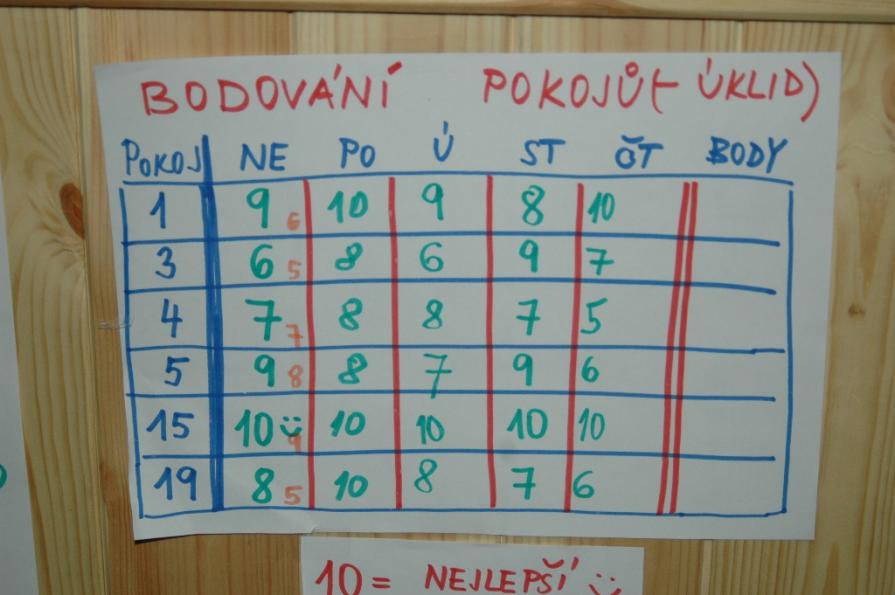 BODOVÁNÍ POKOJŮ (- ÚKLID)
POKOJ NE PO Ú ST ČT BODY
1 9 6 10 9 8 10
3 6 5 8 6 9 7
4 7 7 8 8 7 5
5 9 8 8 7 9 6
15 10 9 10 10 10 10
19 8 5 10 8 7 6
10 = NEJLEPŠÍ